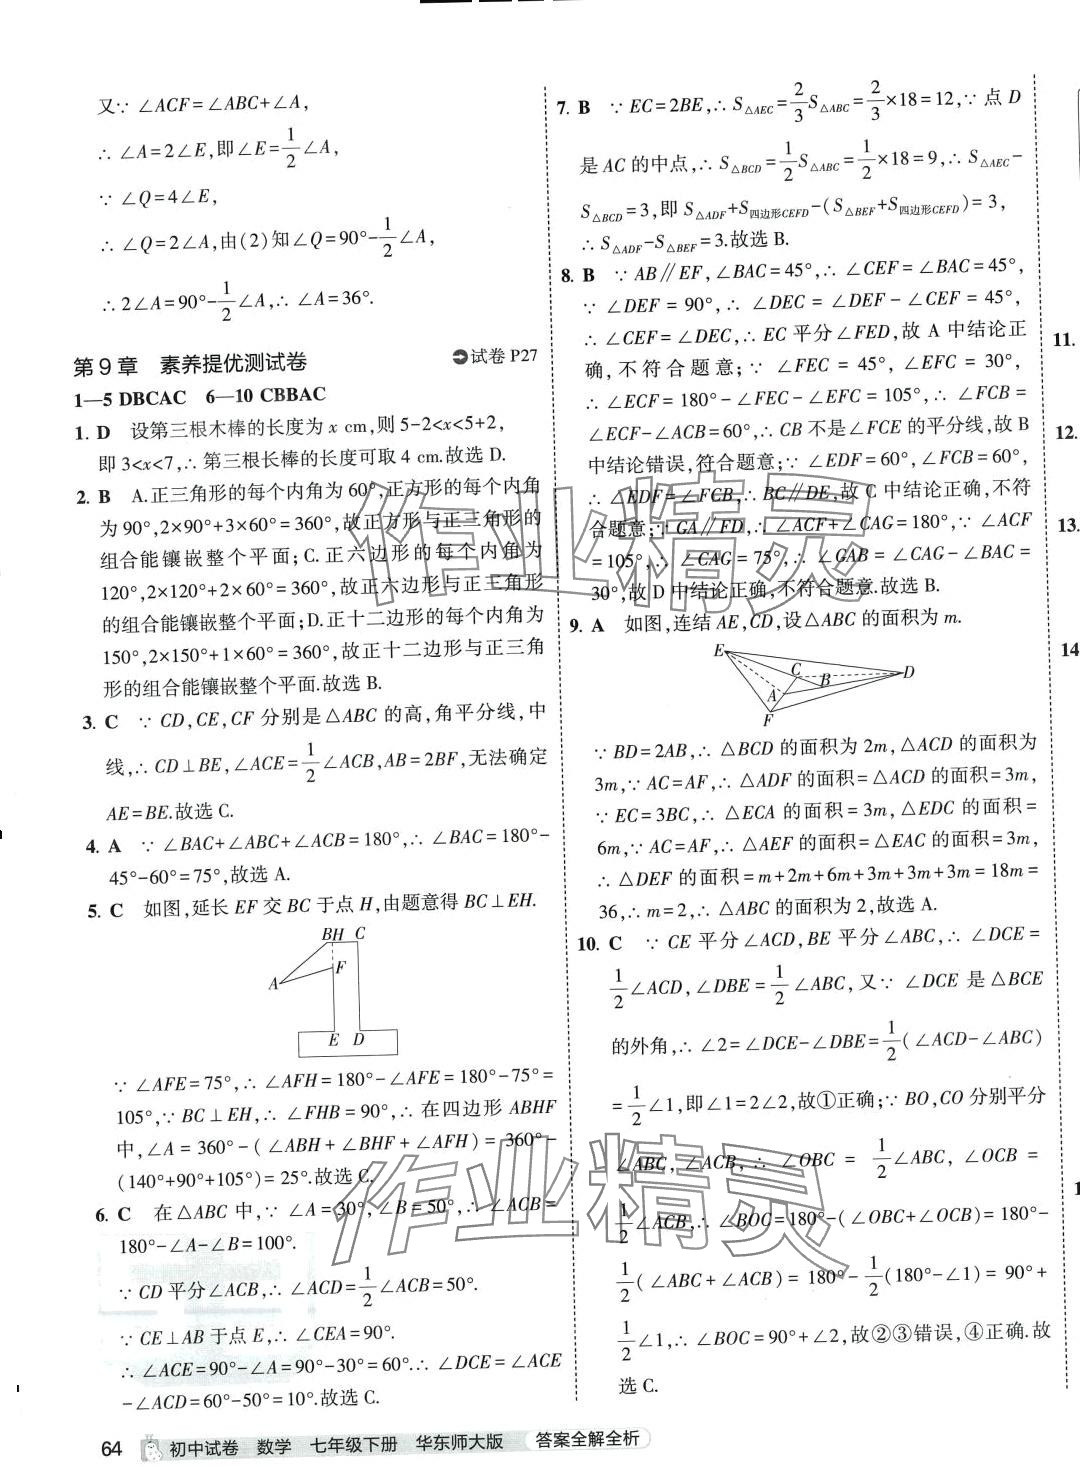 又∵ ∠ACF=∠ABC+∠A,
∴ ∠A=2∠E,即∠E=1/2∠A,
∵ ∠Q=4∠E,
∴ ∠Q=2∠A,由(2)知∠Q=90°-1/2∠A,
∴ 2∠A=90°-1/2∠A,∴ ∠A=36°.
第9章 素养提优测试卷 试卷 P27
1—5 DBCAC 6—10 CBBAC
1. D 设第三根木棒的长度为 x cm,则 5-2<x<5+2,
即 3<x<7,∴ 第三根长棒的长度可取 4 cm.故选 D.
2. B A.正三角形的每个内角为 60°,正方形的每个内角
为 90°,2×90°+3×60°=360°,故正方形与正三角形的
组合能镶嵌整个平面;C.正六边形的每个内角为
120°,2×120°+2×60°=360°,故正六边形与正三角形
的组合能镶嵌整个平面;D.正十二边形的每个内角为
150°,2×150°+1×60°=360°,故正十二边形与正三角
形的组合能镶嵌整个平面.故选 B.
3. C ∵ CD,CE,CF 分别是△ABC 的高,角平分线,中
线,∴ CD⊥BE,∠ACE=1/2∠ACB,AB=2BF,无法确定
AE=BE.故选 C.
4. A ∵ ∠BAC+∠ABC+∠ACB=180°,∴ ∠BAC=180°-
45°-60°=75°,故选 A.
5. C 如图,延长 EF 交 BC 于点 H,由题意得 BC⊥EH.
BH C
F
A
E D
∵ ∠AFE=75°,∴ ∠AFH=180°-∠AFE=180°-75°=
105°,∵ BC⊥EH,∴ ∠FHB=90°,∴ 在四边形 ABHF
中,∠A=360°-(∠ABH+∠BHF+∠AFH)=360°-
(140°+90°+105°)=25°.故选 C.
6. C 在△ABC 中,∵ ∠A=30°,∠B=50°,∴ ∠ACB=
180°-∠A-∠B=100°.
∵ CD 平分∠ACB,∴ ∠ACD=1/2∠ACB=50°.
∵ CE⊥AB 于点 E,∴ ∠CEA=90°.
∴ ∠ACE=90°-∠A=90°-30°=60°.∴ ∠DCE=∠ACE
-∠ACD=60°-50°=10°.故选 C.
7. B ∵ EC=2BE,∴ S△AEC=2/3S△ABC=2/3×18=12,∵ 点 D
是 AC 的中点,∴ S△BCD=1/2S△ABC=1/2×18=9,∴ S△AEC-
S△BCD=3,即 S△ADF+S四边形CEFD-(S△BEF+S四边形CEFD)=3,
∴ S△ADF-S△BEF=3.故选 B.
8. B ∵ AB∥EF,∠BAC=45°,∴ ∠CEF=∠BAC=45°,
∵ ∠DEF=90°,∴ ∠DEC=∠DEF-∠CEF=45°,
∴ ∠CEF=∠DEC,∴ EC 平分∠FED,故 A 中结论正
确,不符合题意;∵ ∠FEC=45°,∠EFC=30°,
∴ ∠ECF=180°-∠FEC-∠EFC=105°,∴ ∠FCB=
∠ECF-∠ACB=60°,∴ CB 不是∠FCE 的平分线,故 B
中结论错误,符合题意;∵ ∠EDF=60°,∠FCB=60°,
∴ ∠EDF=∠FCB,∴ BC∥DE,故 C 中结论正确,不符
合题意;∵ GA∥FD,∴ ∠ACF+∠CAG=180°,∵ ∠ACF
=105°,∴ ∠CAG=75°,∴ ∠GAB=∠CAG-∠BAC=
30°,故 D 中结论正确,不符合题意.故选 B.
9. A 如图,连结 AE,CD,设△ABC 的面积为 m.
E
C
B
D
A
F
∵ BD=2AB,∴ △BCD 的面积为 2m,△ACD 的面积为
3m,∵ AC=AF,∴ △ADF 的面积=△ACD 的面积=3m,
∵ EC=3BC,∴ △ECA 的面积=3m,△EDC 的面积=
6m,∵ AC=AF,∴ △AEF 的面积=△EAC 的面积=3m,
∴ △DEF 的面积=m+2m+6m+3m+3m+3m=18m=
36,∴ m=2,∴ △ABC 的面积为 2,故选 A.
10. C ∵ CE 平分∠ACD,BE 平分∠ABC,∴ ∠DCE=
1/2∠ACD,∠DBE=1/2∠ABC,又∵ ∠DCE 是△BCE
的外角,∴ ∠2=∠DCE-∠DBE=1/2(∠ACD-∠ABC)
=1/2∠1,即∠1=2∠2,故①正确;∵ BO,CO 分别平分
∠ABC,∠ACB,∴ ∠OBC=1/2∠ABC,∠OCB=
1/2∠ACB,∴ ∠BOC=180°-(∠OBC+∠OCB)=180°-
1/2(∠ABC+∠ACB)=180°-1/2(180°-∠1)=90°+
1/2∠1,∴ ∠BOC=90°+∠2,故②③错误,④正确.故
选 C.
11.
12.
13.
14
1
作业精灵
作业精灵
64 初中试卷 数学 七年级下册 华东师大版 答案全解全析